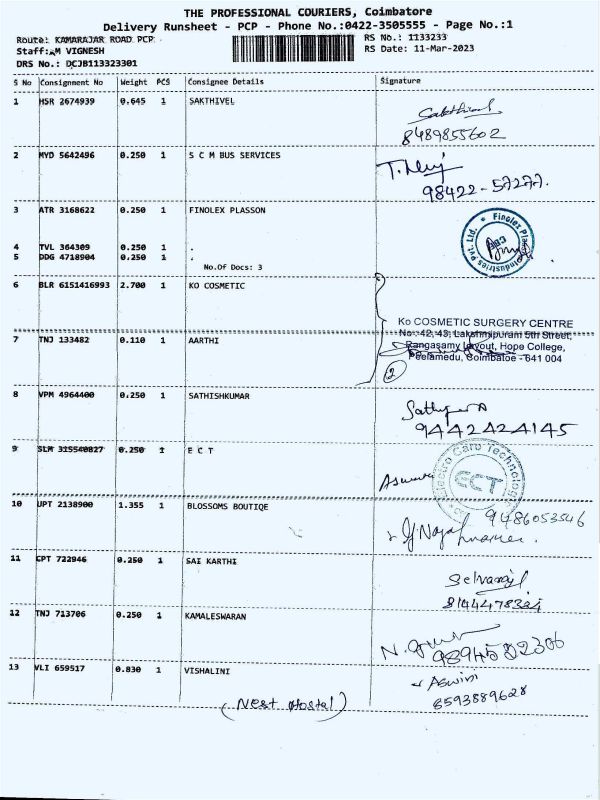 THE PROFESSIONAL COURIERS, Coimbatore
Delivery Runsheet - PCP - Phone No.:0422-3505555 - Page No.:1
Route: KAMARAJAR ROAD PCP
RS No.: 1133233
Staff: M VIGNESH
RS Date: 11-Mar-2023
DRS No.: DCJB113323301
S No Consignment No Weight PCS Consignee Details Signature
1 HSR 2674939 0.645 1 SAKTHIVEL
Sakthivel
8489855602
2 MYD 5642496 0.250 1 S C M BUS SERVICES
98422-57277.
3 ATR 3168622 0.250 1 FINOLEX PLASSON
4 TVL 364309 0.250 1 .
5 DDG 4718904 0.250 1 .
No.Of Docs: 3
6 BLR 6151416993 2.700 1 KO COSMETIC
Ko COSMETIC SURGERY CENTRE
No: 42, 43, Lakshmipuram 5th Street,
7 TNJ 133482 0.110 1 AARTHI
Rangasamy Layout, Hope College,
Peelamedu, Coimbatoe - 641 004
2
8 VPM 4964400 0.250 1 SATHISHKUMAR
9442424145
9 SLM 315540827 0.250 1 E C T
Electro Carb Technology
ECT
10 UPT 2138900 1.355 1 BLOSSOMS BOUTIQE
9486053546
11 CPT 722946 0.250 1 SAI KARTHI
Selvaraj
12 TNJ 713706 0.250 1 KAMALESWARAN
13 VLI 659517 0.830 1 VISHALINI
Aswini
8593889628
(Nest Hostal)